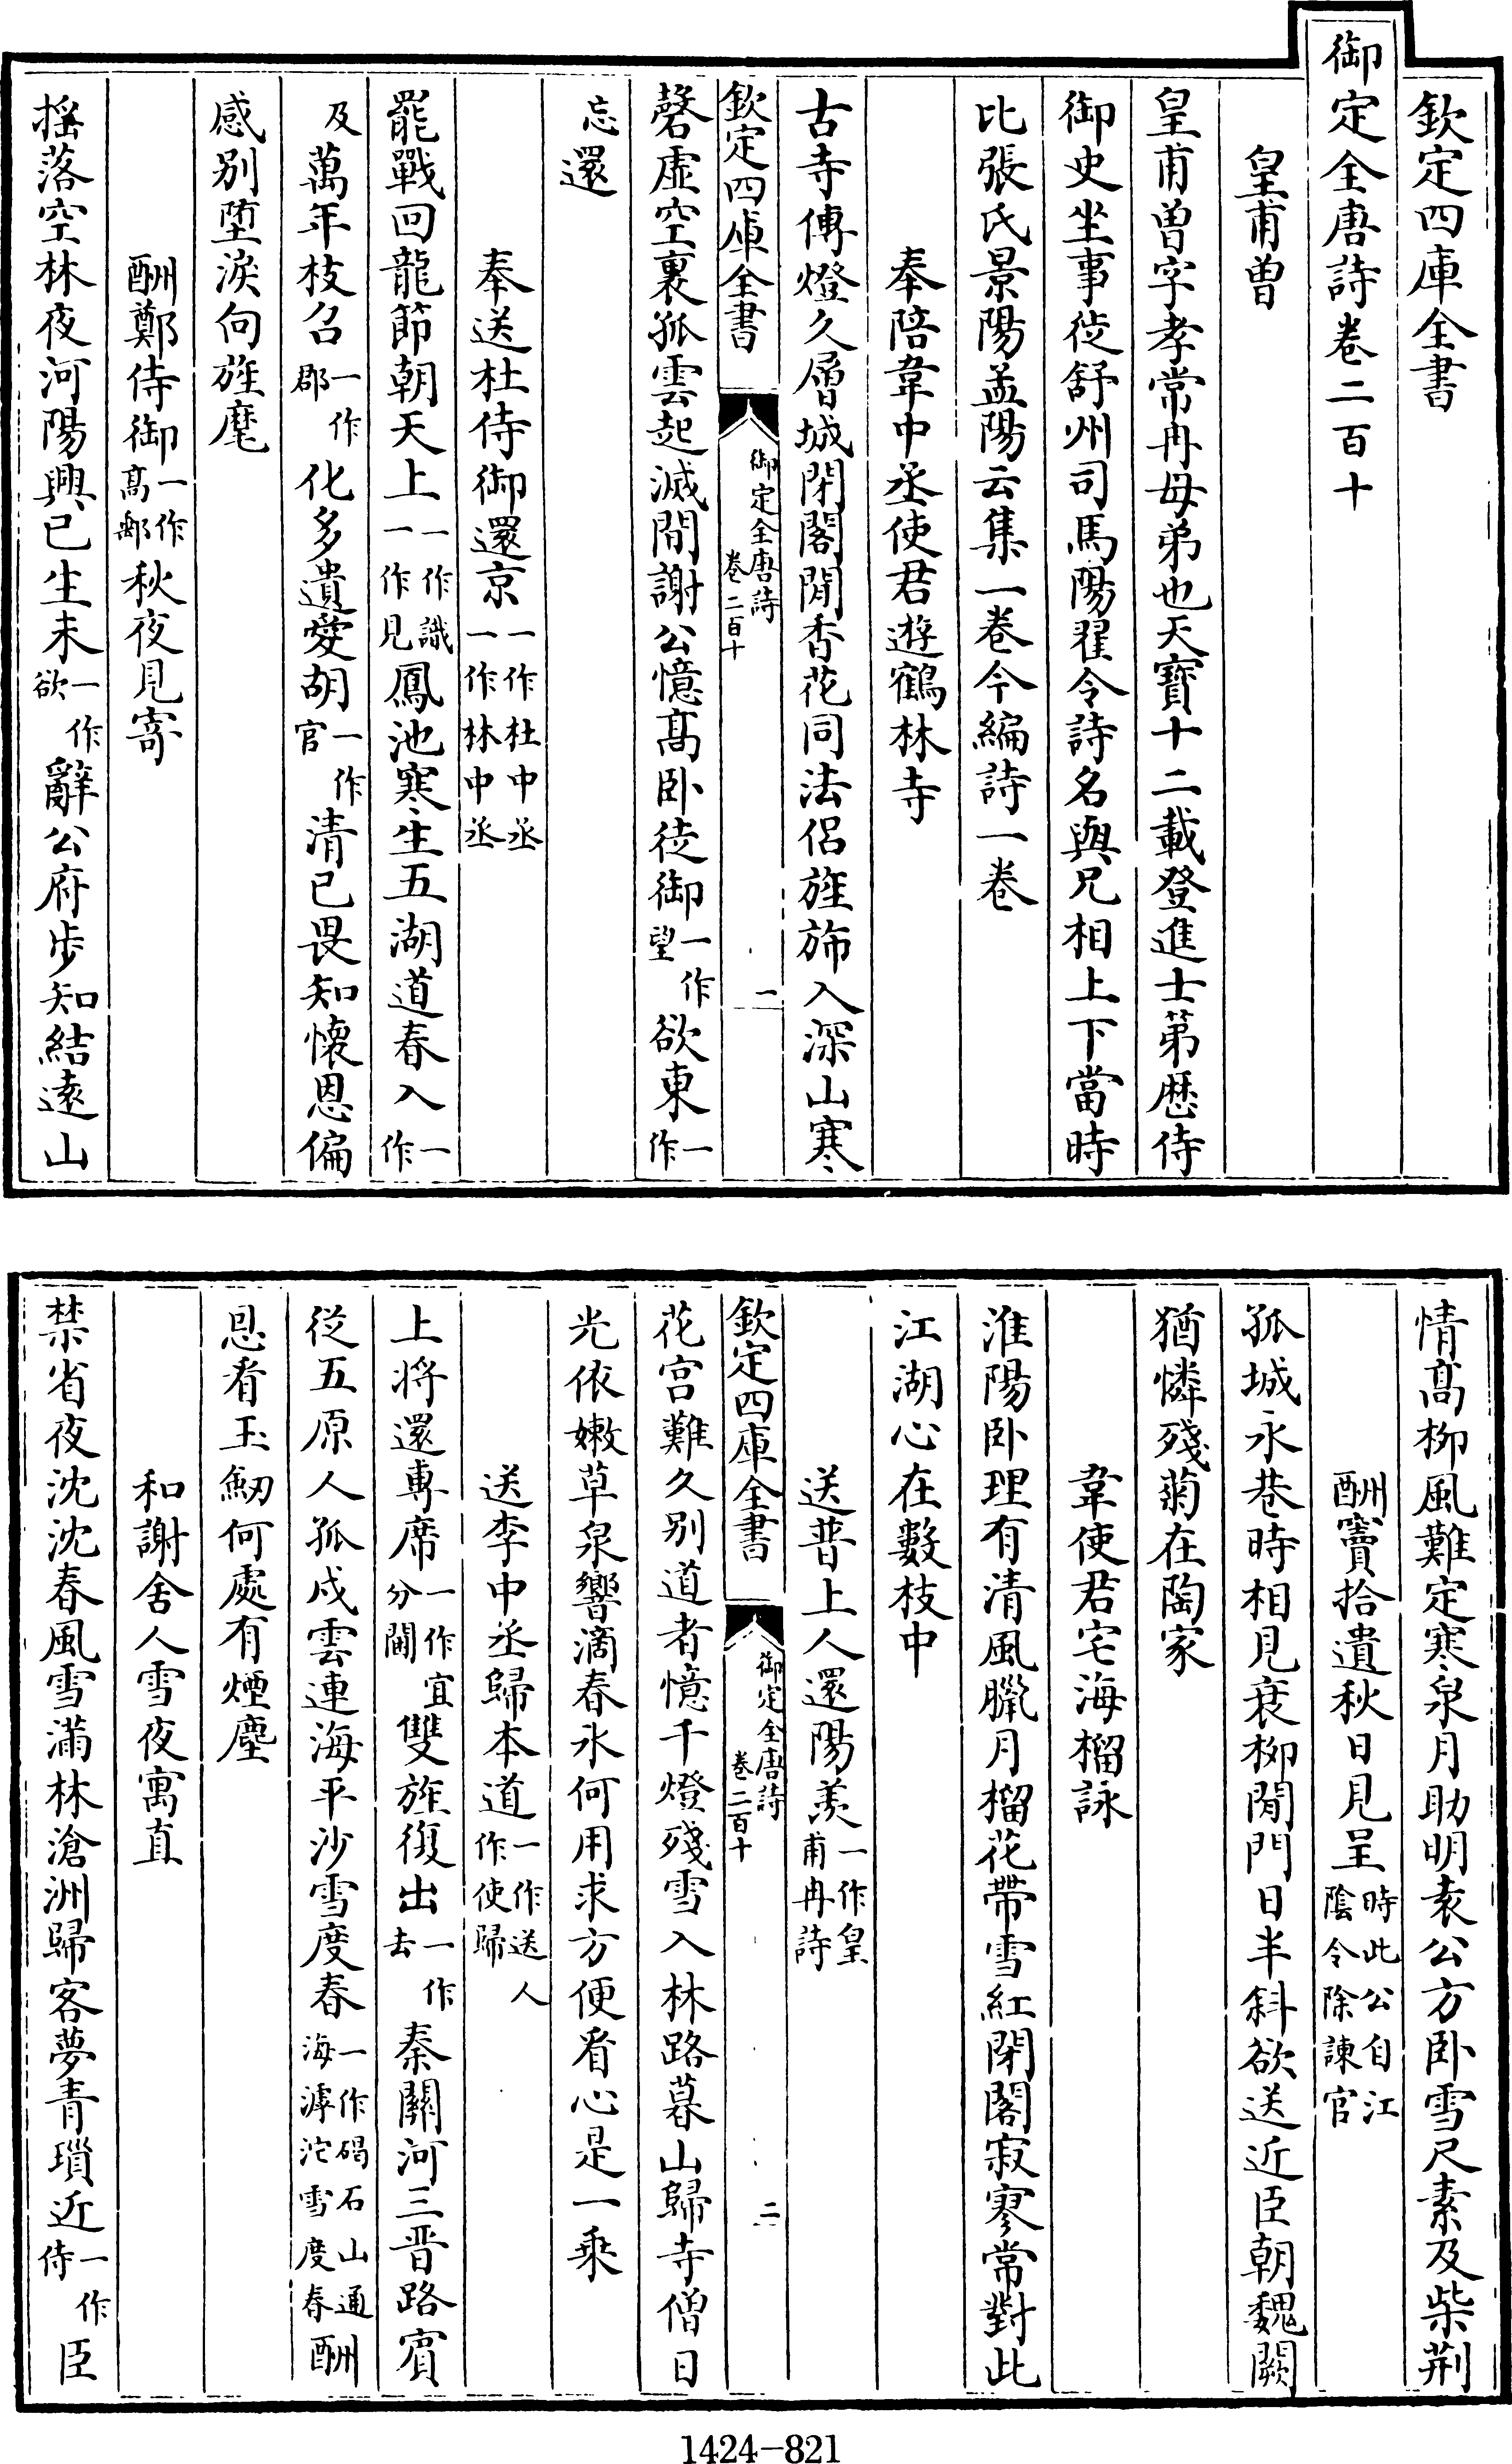 欽定四庫全書
御定全唐詩卷二百十
皇甫曾
皇甫曾字孝常冉母弟也天寶十二載登進士第歴侍
御史坐事徙舒州司馬陽翟令詩名與兄相上下當時
比張氏景陽孟陽云集一卷今編詩一卷
奉陪韋中丞使君遊鶴林寺
古寺傳燈久層城閉閣閒香花同法侣旌斾入深山寒
欽定四庫全書 御定全唐詩 卷二百十 一
磬虚空裏孤雲起滅間謝公憶髙卧徒御一作望欲東一作
忘還
奉送杜侍御還京一作杜中丞一作林中丞
罷戰回龍節朝天上一作識一作見鳳池寒生五湖道春入一作
及萬年枝召一作郡化多遺愛胡一作官清已畏知懐恩偏
感别堕淚向旌麾
酬鄭侍御一作髙郵秋夜見寄
揺落空林夜河陽興已生未一作欲辭公府步知結逺山
情髙柳風難定寒泉月助明袁公方卧雪尺素及柴荆
酬竇拾遺秋日見呈時此公自江陰令除諫官
孤城永巷時相見衰柳閒門日半斜欲送近臣朝魏闕
猶憐殘菊在陶家
韋使君宅海榴詠
淮陽卧理有清風臘月榴花帶雪紅閉閣寂寥常對此
江湖心在數枝中
送普上人還陽羡一作皇甫冉詩
欽定四庫全書 御定全唐詩 卷二百十 二
花宫難久别道者憶千燈殘雪入林路暮山歸寺僧日
光依嫩草泉響滴春氷何用求方便看心是一乗
送李中丞歸本道一作送人作使歸
上将還專席一作宜分閫雙旌復出一作去秦關河三晋路賓
從五原人孤戍雲連海平沙雪度春一作碣石山通海滹沱雪度春酬
恩看玉劒何處有煙塵
和謝舍人雪夜寓直
禁省夜沈沈春風雪滿林滄洲歸客夢青瑣近一作侍臣
1424-821